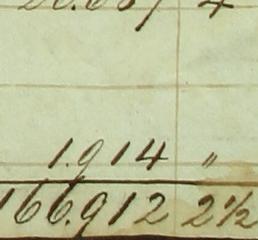 1.914 "
166.912 2½